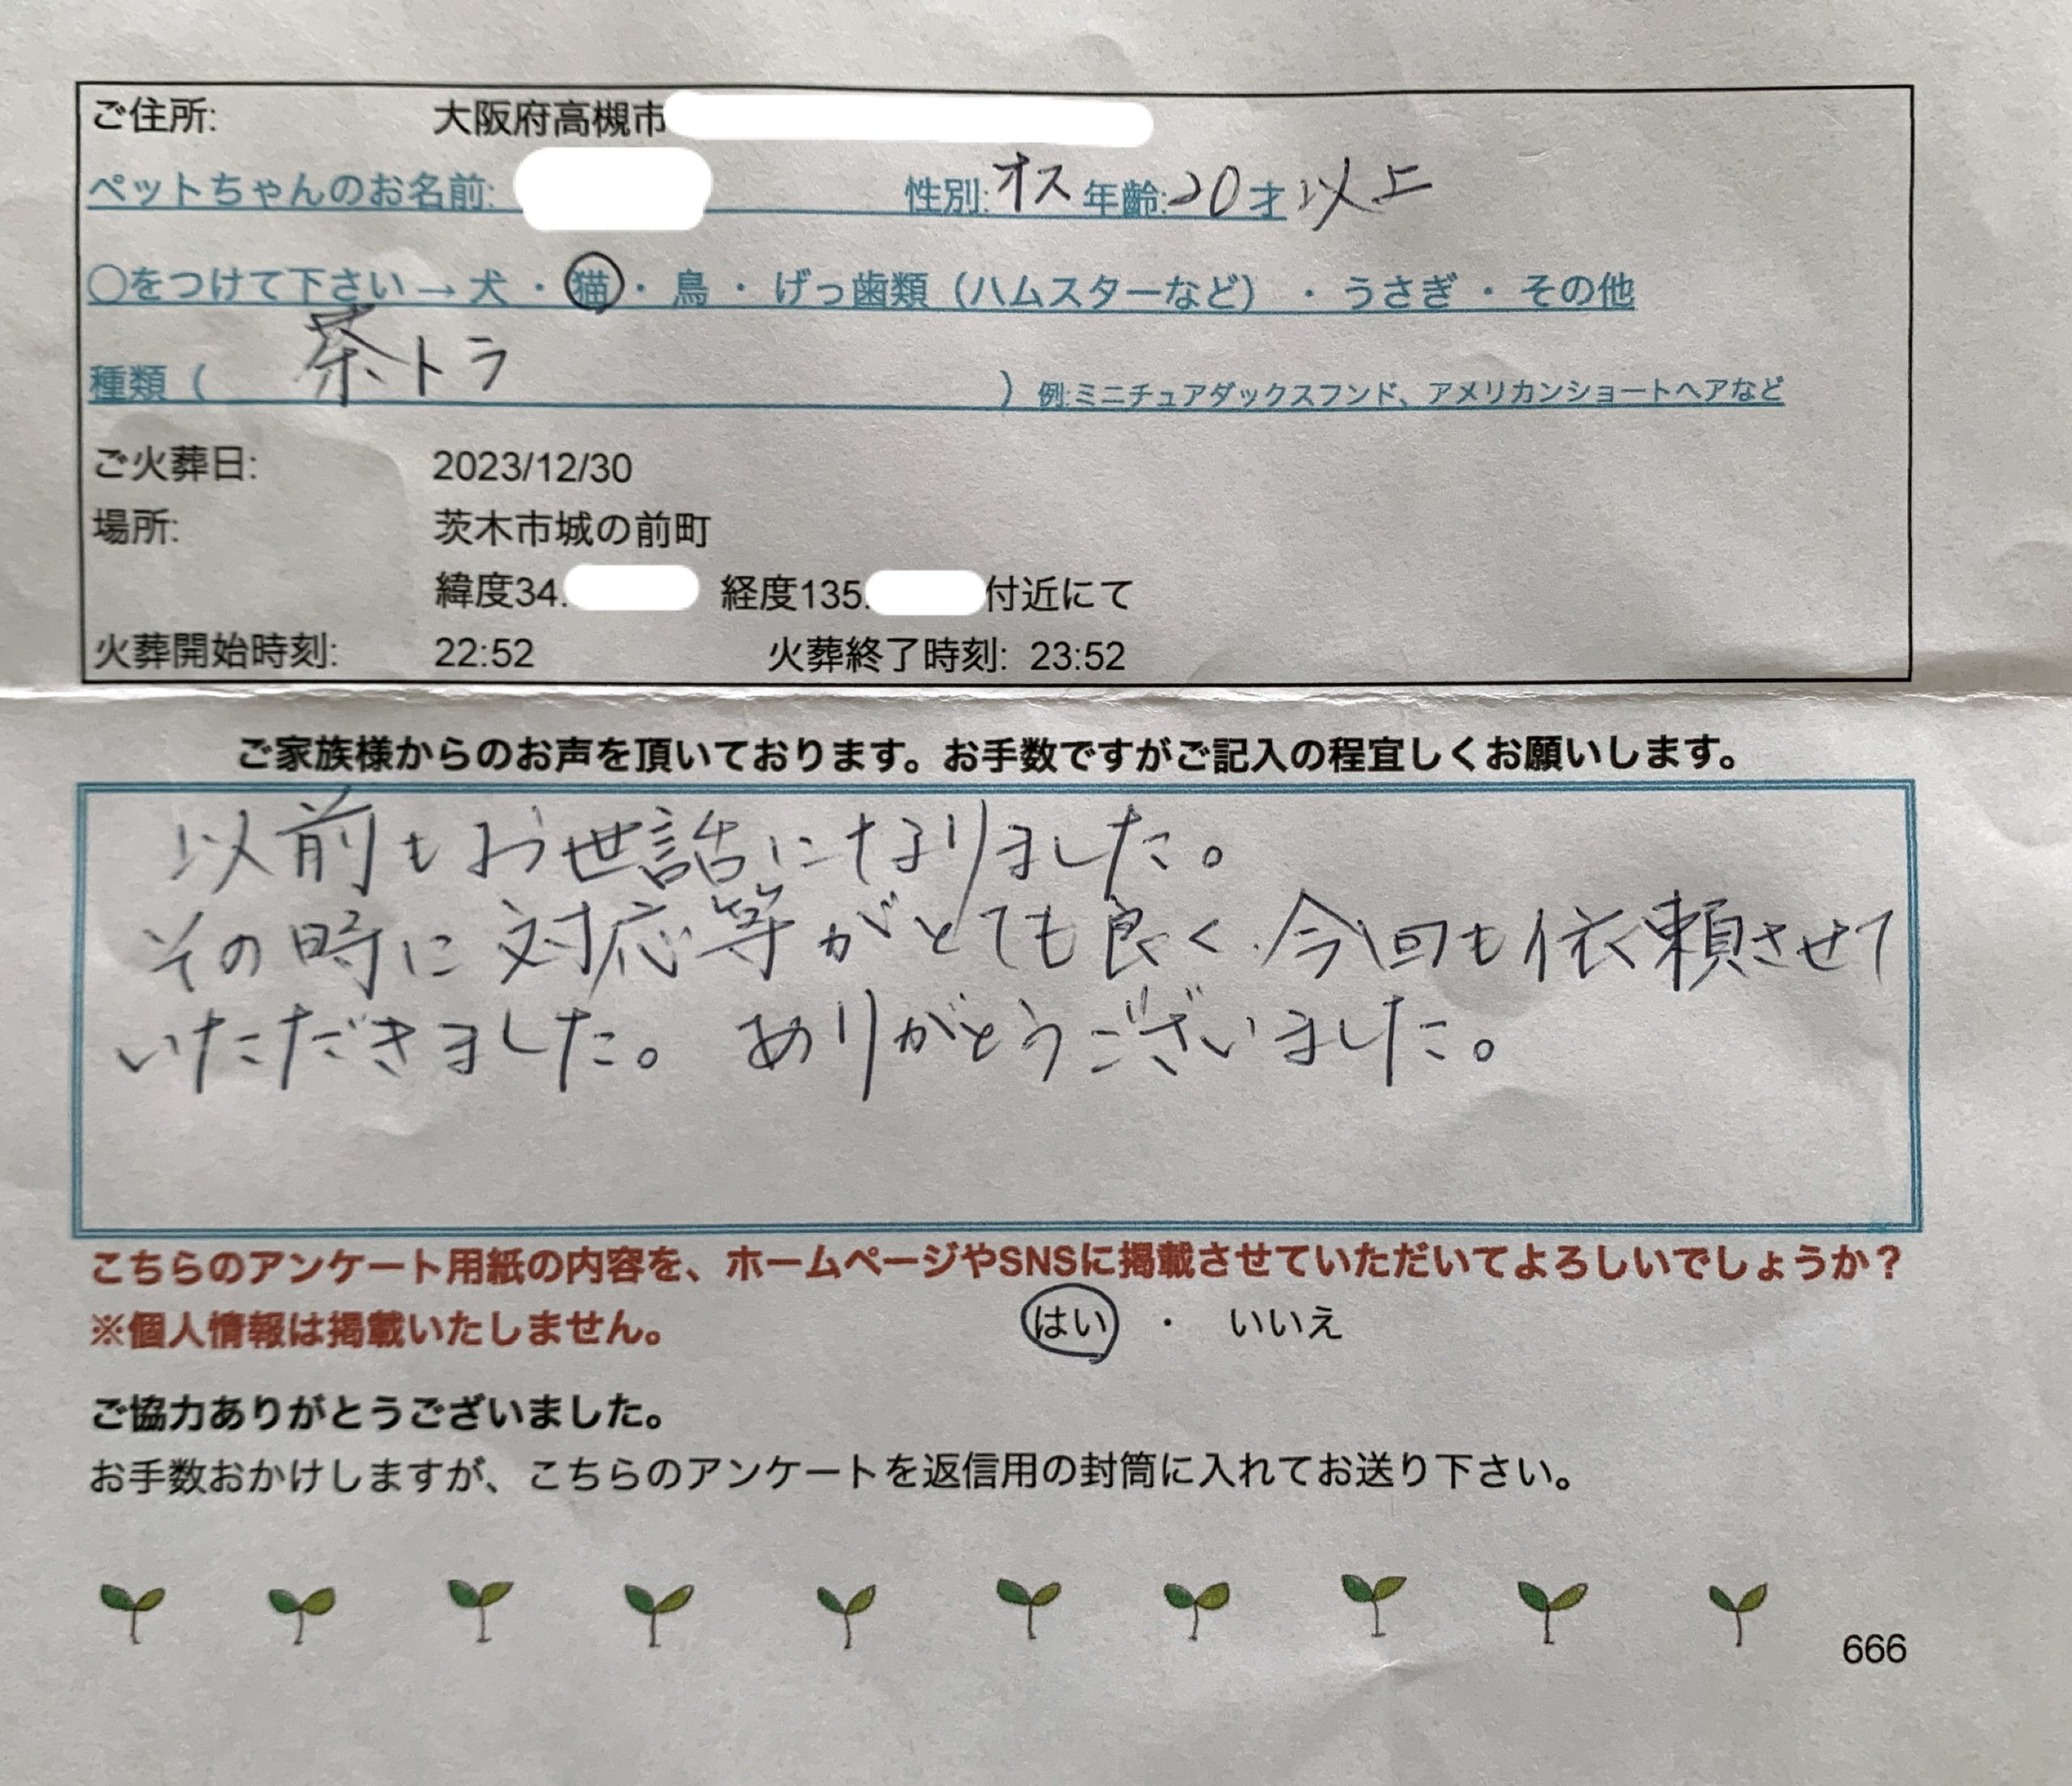 ご住所: 大阪府高槻市
ペットちゃんのお名前: 性別:オス 年齢:20才以上
〇をつけて下さい→ 犬 ・ 猫 ・ 鳥 ・ げっ歯類（ハムスターなど） ・ うさぎ ・ その他
種類（ 茶トラ ）例:ミニチュアダックスフンド、アメリカンショートヘアなど
ご火葬日: 2023/12/30
場所: 茨木市城の前町
緯度34. 経度135. 付近にて
火葬開始時刻: 22:52 火葬終了時刻: 23:52
ご家族様からのお声を頂いております。お手数ですがご記入の程宜しくお願いします。
以前もお世話になりました。
その時に対応等がとても良く、今回も依頼させて
いただきました。ありがとうございました。
こちらのアンケート用紙の内容を、ホームページやSNSに掲載させていただいてよろしいでしょうか？
※個人情報は掲載いたしません。 はい ・ いいえ
ご協力ありがとうございました。
お手数おかけしますが、こちらのアンケートを返信用の封筒に入れてお送り下さい。
666